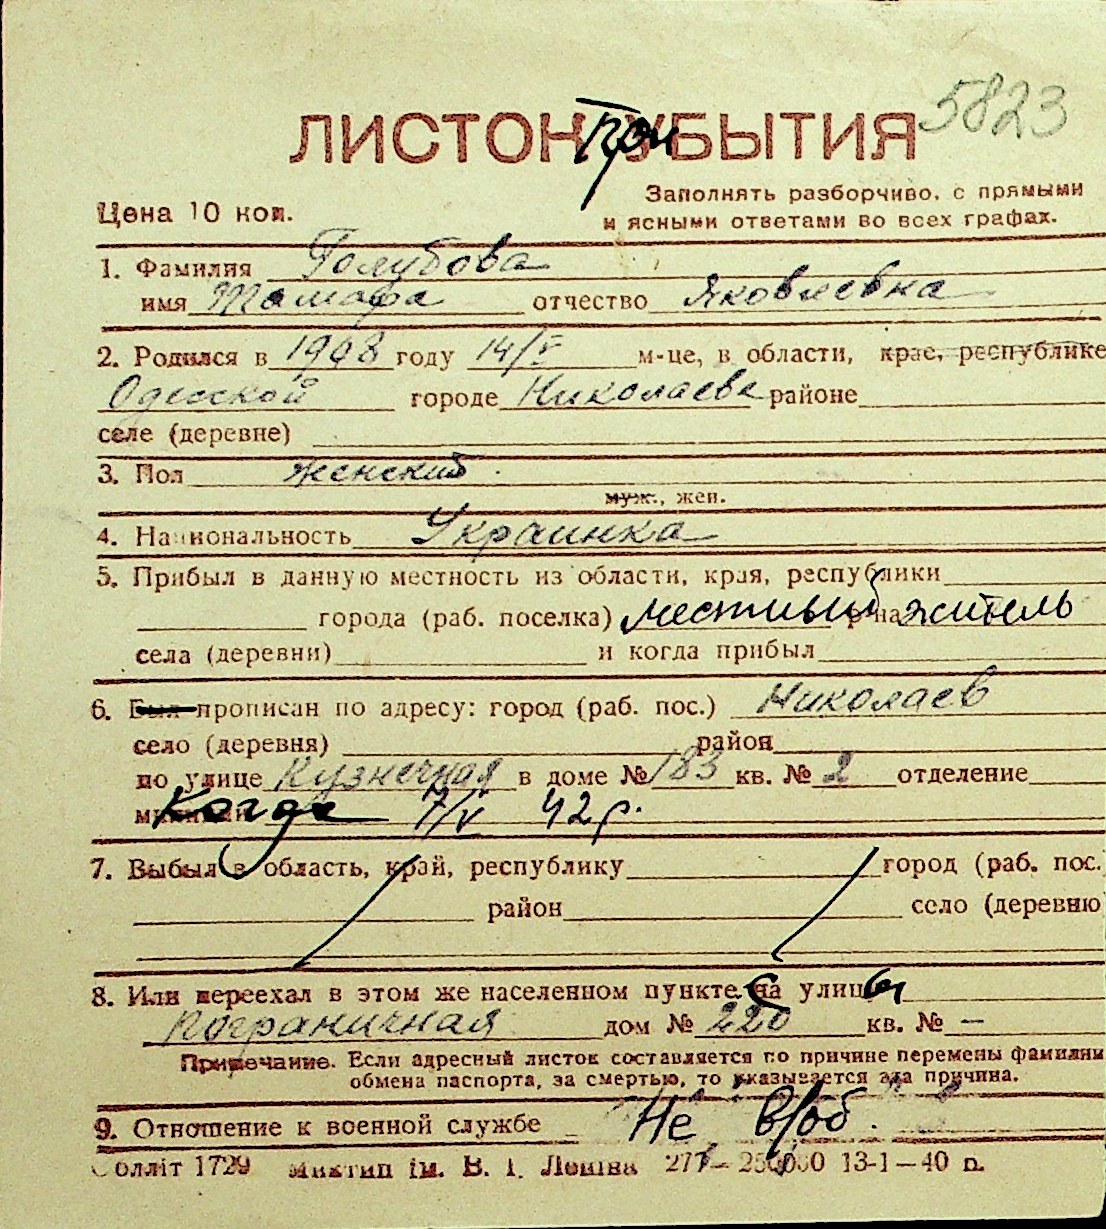 5823
ЛИСТОК При УБЫТИЯ
Заполнять разборчиво, с прямыми
Цена 10 коп.
и ясными ответами во всех графах.
1. Фамилия Голубова
имя Тамара отчество Яковлевна
2. Родился в 1908 году 14/V м-це, в области, крае, республике
Одесской городе Николаеве районе
селе (деревне)
3. Пол женский
муж., жен.
4. Национальность Украинка
5. Прибыл в данную местность из области, края, республики
города (раб. поселка) местный р-на житель
села (деревни) и когда прибыл
6. Был прописан по адресу: город (раб. пос.) Николаев
село (деревня) район
по улице Кузнечная в доме № 183 кв. № 2 отделение
Когда 7/V 42 г.
7. Выбыл в область, край, республику город (раб. пос.
район село (деревню
8. Или переехал в этом же населенном пункте с на улицы
Пограничная дом № 220 кв. № —
Примечание. Если адресный листок составляется по причине перемены фамилии
обмена паспорта, за смертью, то указывается эта причина.
9. Отношение к военной службе Не в/об.
Оолліт 1729 Миктип ім. В. І. Леніна 277 — 250,000 13-1—40 р.